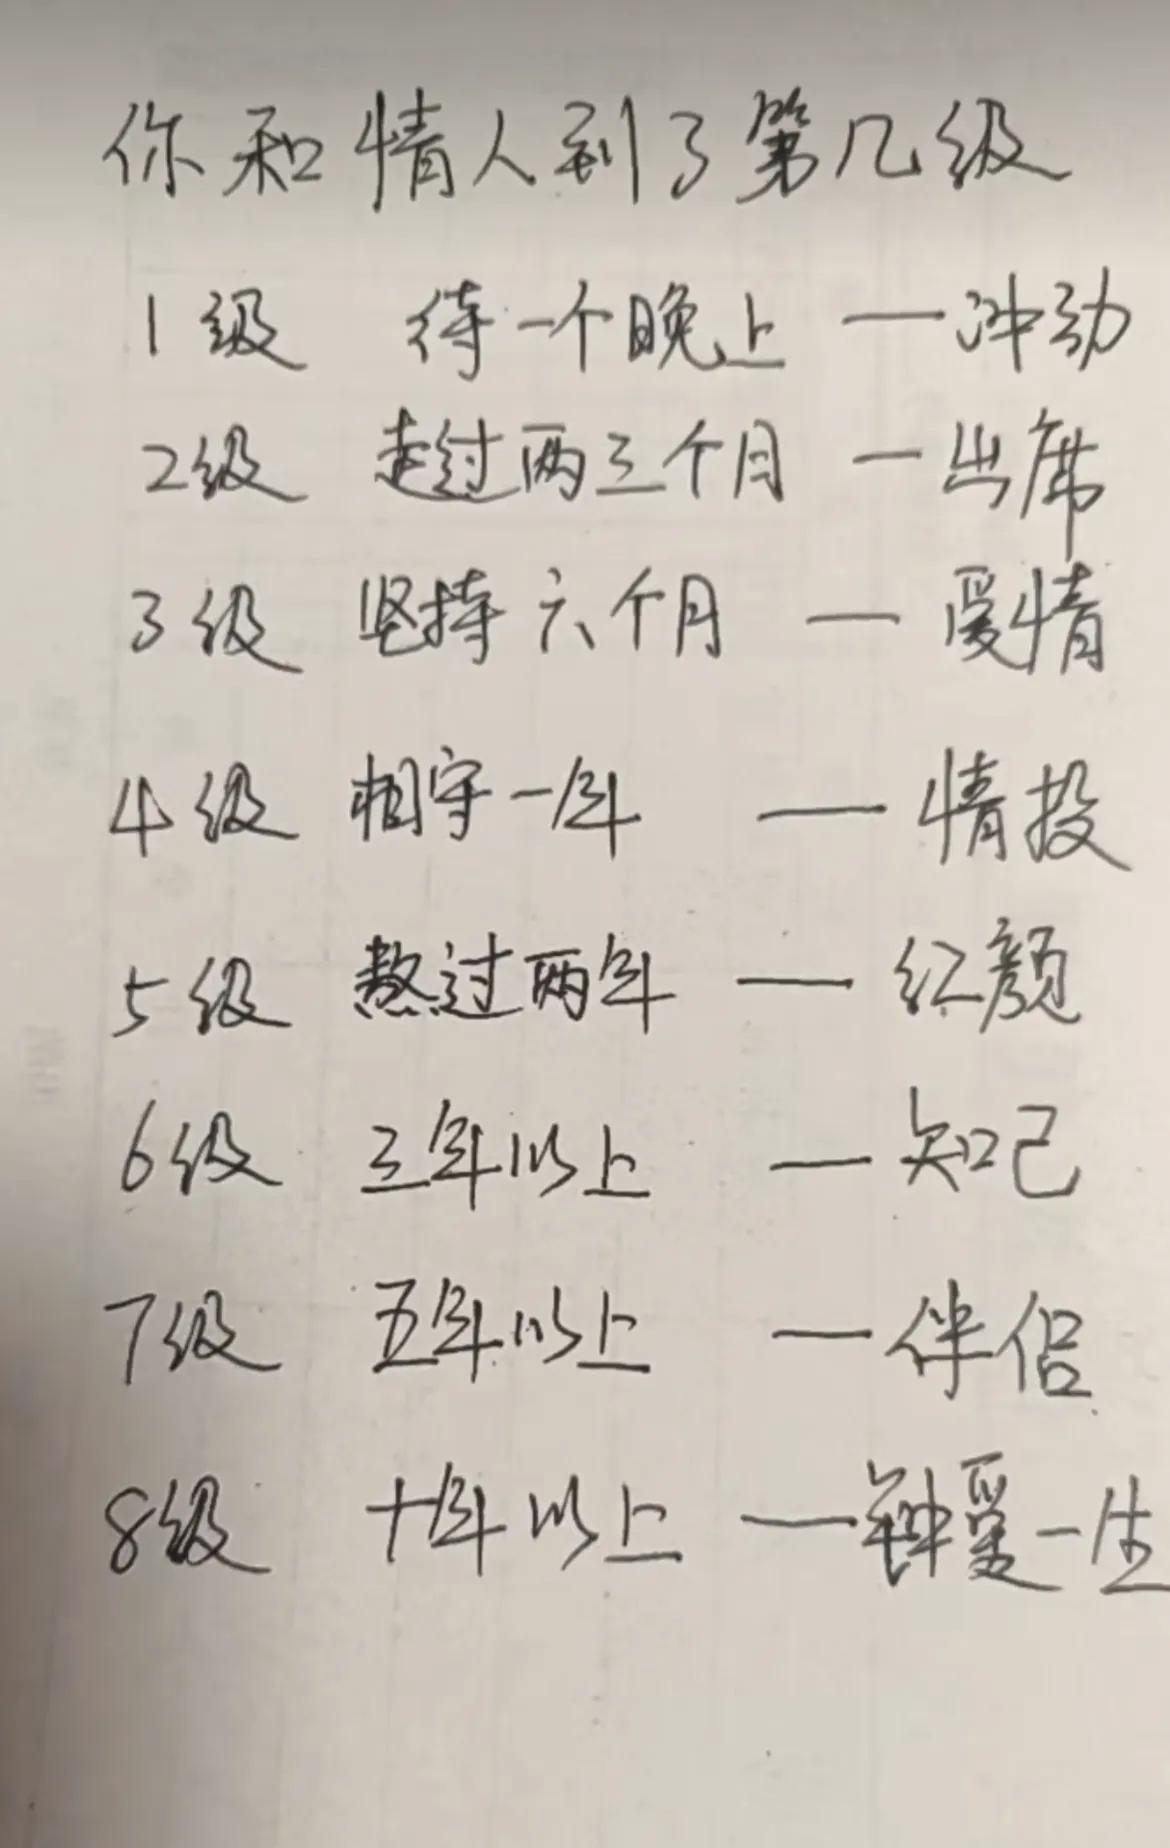 你和情人到了第几级
1级 待一个晚上 — 冲动
2级 走过两三个月 — 出席
3级 坚持六个月 — 爱情
4级 相守一年 — 情投
5级 熬过两年 — 红颜
6级 三年以上 — 知己
7级 五年以上 — 伴侣
8级 十年以上 — 钟爱一生